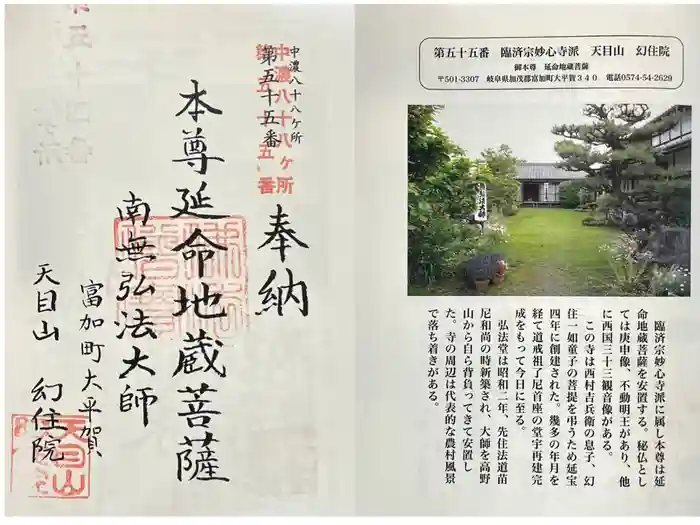 中濃八十八ヶ所
第五十五番
中濃八十八ヶ所
第五十五番
奉納
本尊延命地蔵菩薩
南無弘法大師
富加町大平賀
天目山 幻住院
天目山
第五十四番
第五十五番 臨済宗妙心寺派 天目山 幻住院
御本尊 延命地蔵菩薩
〒501-3307 岐阜県加茂郡富加町大平賀340 電話0574-54-2629
弘法大師
臨済宗妙心寺派に属し本尊は延
命地蔵菩薩を安置する。秘仏とし
ては庚申像、不動明王があり、他
に西国三十三観音像がある。
この寺は西村吉兵衛の息子、幻
住一如童子の菩提を弔うため延宝
四年に創建された。幾多の年月を
経て道戒祖了尼首座の堂宇再建完
成をもって今日に至る。
弘法堂は昭和二年、先住法道苗
尼和尚の時新築され、大師を高野
山から自ら背負ってきて安置し
た。寺の周辺は代表的な農村風景
で落ち着きがある。